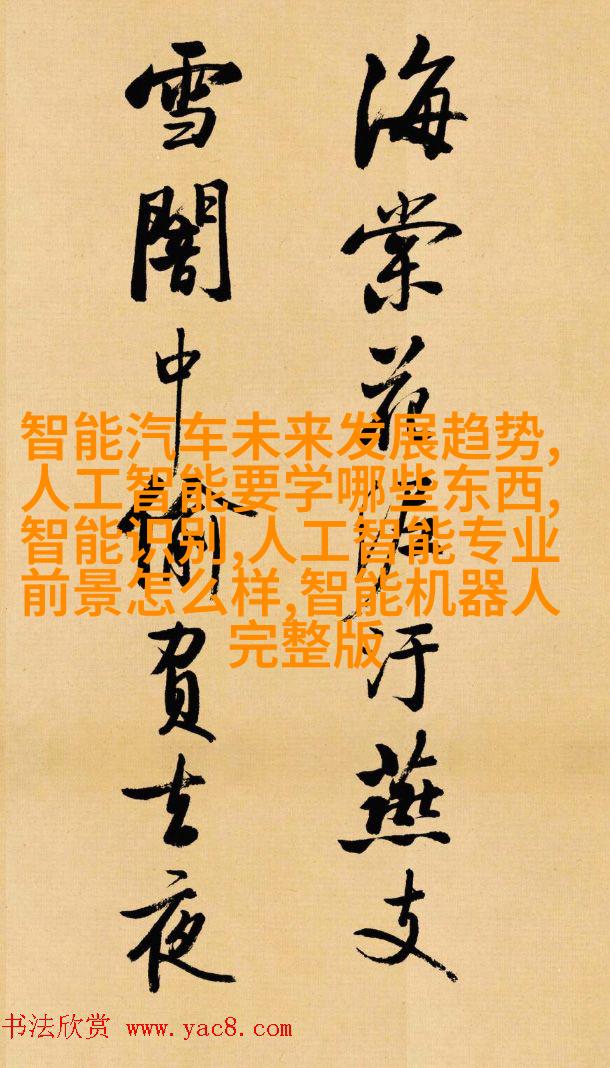 海棠花泥汙燕支
雪闇中偷負去夜
智能汽车未来发展趋势,
人工智能要学哪些东西,
智能识别,人工智能专业
前景怎么样,智能机器人
完整版
书法欣赏 www.yac8.com